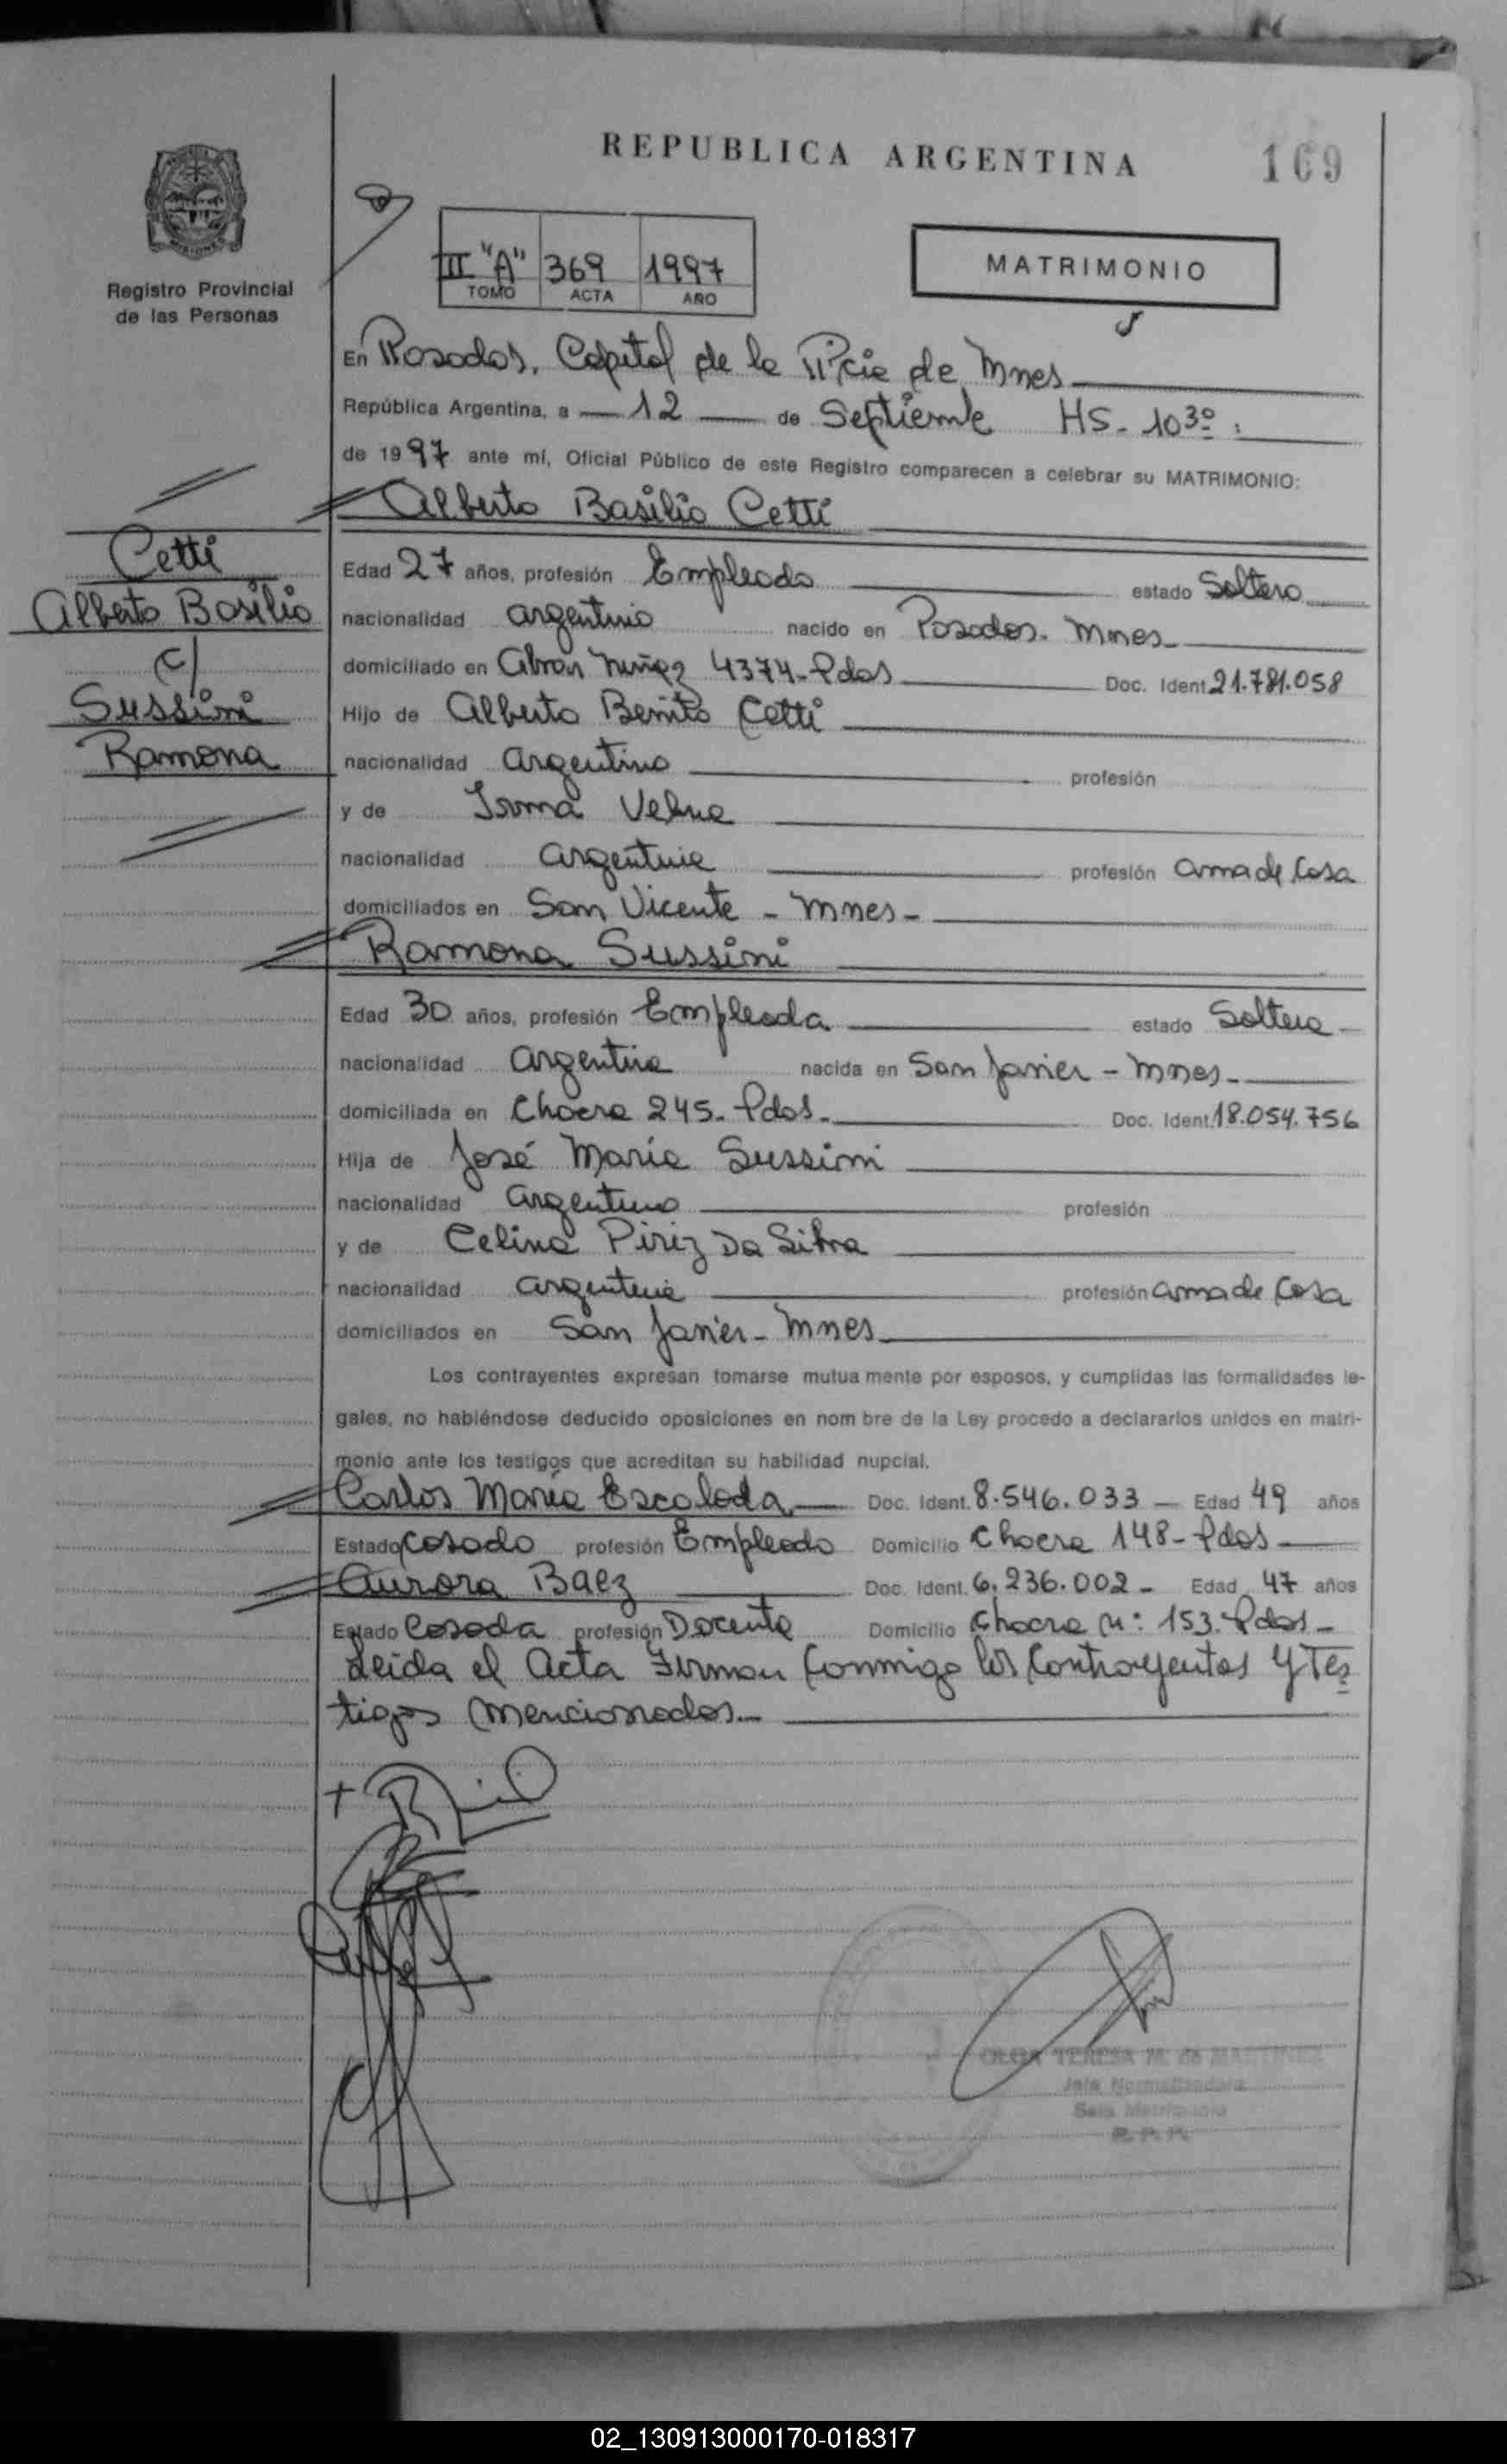 REPUBLICA ARGENTINA
169
MISIONES
Registro Provincial
de las Personas
II "A" 369 1997
TOMO ACTA AÑO
MATRIMONIO
En Posadas, Capital de la Pcia de Mnes
República Argentina, a 12 de Septiembre HS. 10 30
de 1997 ante mí, Oficial Público de este Registro comparecen a celebrar su MATRIMONIO:
Alberto Basilio Cetti
Cetti
Alberto Basilio
c/
Sussini
Ramona
Edad 27 años, profesión Empleado estado Soltero
nacionalidad argentino nacido en Posadas. Mnes
domiciliado en Abran Nuñez 4374-Pdas Doc. Ident. 21.781.058
Hijo de Alberto Benito Cetti
nacionalidad Argentino profesión
y de
nacionalidad argentina profesión ama de Casa
domiciliados en San Vicente - Mnes-
Ramona Sussini
Edad 30 años, profesión Empleada estado Soltera
nacionalidad argentina nacida en San Javier - Mnes-
domiciliada en Chacra 245. Pdas. Doc. Ident. 18.054.756
Hija de José María Sussini
nacionalidad argentino profesión
y de Celina Piriz Da Silva
nacionalidad argentina profesión ama de Casa
domiciliados en San Javier - Mnes
Los contrayentes expresan tomarse mutua mente por esposos, y cumplidas las formalidades le-
gales, no habiéndose deducido oposiciones en nom bre de la Ley procedo a declararlos unidos en matri-
monio ante los testigos que acreditan su habilidad nupcial.
Carlos María Escalada Doc. Ident. 8.546.033 Edad 49 años
Estado Casado profesión Empleado Domicilio Chacra 148-Pdas-
Aurora Baez Doc. Ident. 6.236.002- Edad 47 años
Estado Casada profesión Docente Domicilio Chacra n: 153. Pdas-
Leida el Acta Firman Conmigo los Contrayentes y Tes
tigos Mencionados.-
OLGA TERESA M. de MARTINEZ
Sala Matrimonio
R. P. P.
02_130913000170-018317